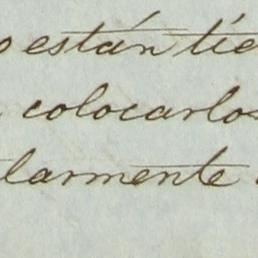 o están tie
colocarlos
larmente